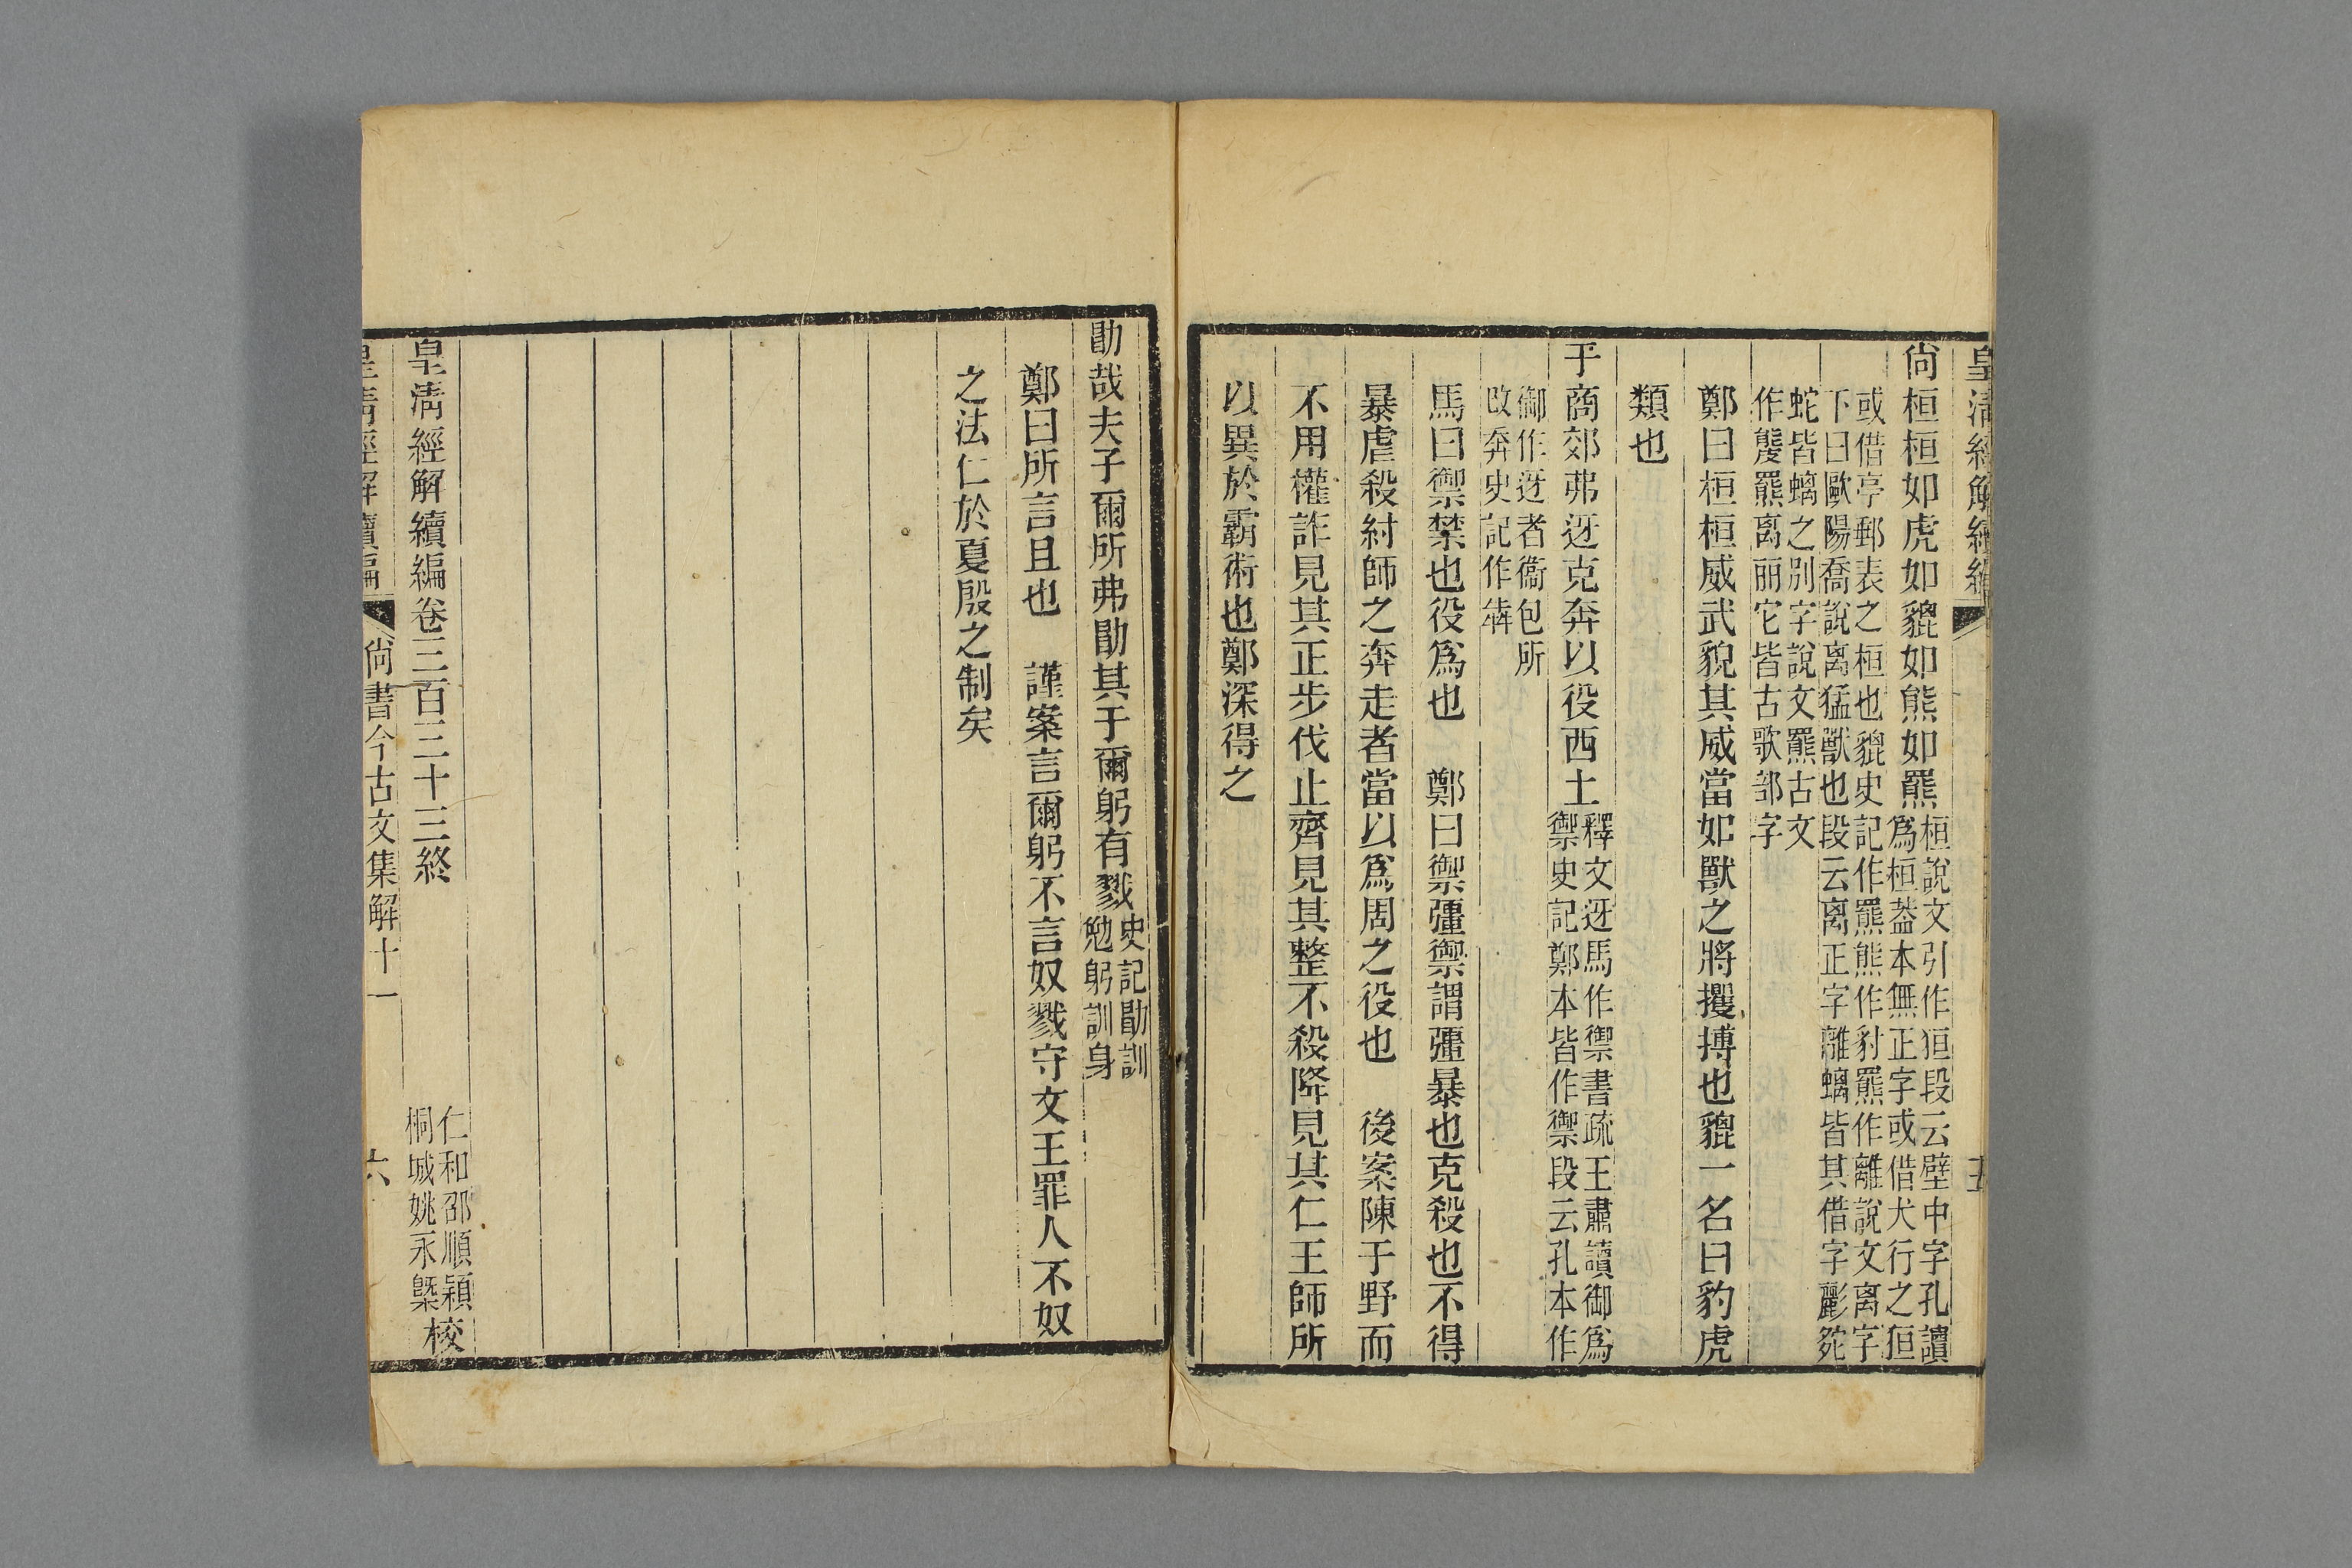 皇清經解續編
五
尙桓桓如虎如貔如熊如羆桓說文引作狟段云壁中字孔讀
爲桓葢本無正字或借犬行之狟
或借亭郵表之桓也貔史記作羆熊作豺羆作離說文离字
下曰歐陽喬說离猛獸也段云离正字離螭皆其借字彲
蛇皆螭之別字說文羆古文
作离丽它皆古歌部字
鄭曰桓桓威武貌其威當如獸之將攫搏也貔一名曰豹虎
類也
于商郊弗迓克奔以役西土釋文迓馬作禦書疏王肅讀御爲
禦史記鄭本皆作禦段云孔本作
御作迓者衞包所
改奔史記作犇
馬曰禦禁也役爲也　鄭曰禦彊禦謂彊暴也克殺也不得
暴虐殺紂師之奔走者當以爲周之役也　後案陳于野而
不用權詐見其正步伐止齊見其整不殺降見其仁王師所
以異於霸術也鄭深得之
勖哉夫子爾所弗勖其于爾躬有戮史記勖訓
勉躬訓身
鄭曰所言且也　謹案言爾躬不言奴戮守文王罪人不奴
之法仁於夏殷之制矣
皇清經解續編卷三百三十三終
仁和邵順穎
桐城姚永㮣
校
皇清經解續編
尙書今古文集解十一
六